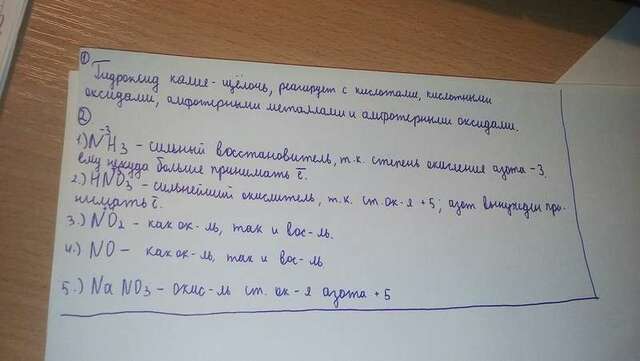 ①
Гидроксид калия - щёлочь, реагирует с кислотами, кислотными
оксидами, амфотерными металлами и амфотерными оксидами.
②
-3
1) NH3 - сильный восстановитель, т.к. степень окисления азота -3,
ему некуда больше принимать ē.
+5
2.) HNO3 - сильнейший окислитель, т.к. ст. ок-я +5; азот вынужден при-
нимать ē.
3.) NO2 - как ок-ль, так и вос-ль.
4.) NO - как ок-ль, так и вос-ль
5.) NaNO3 - окис-ль ст. ок-я азота +5